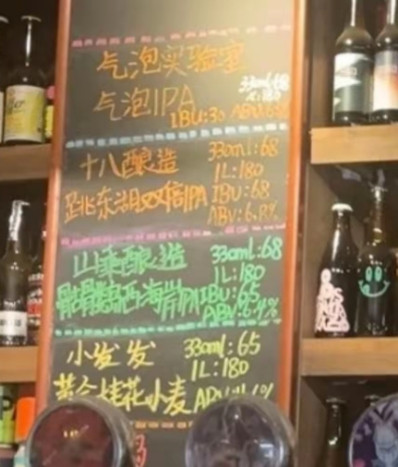 气泡实验室 330ml:68
气泡IPA 1L:180
IBU:30 ABV:6.
十八酿造 330ml:68
1L:180
跳东湖双倍IPA IBU:68
ABV:6.8%
山乘酿造 330ml:68
1L:180
骷髅西海岸IPA IBU:65
ABV:6.4%
小发发 330ml:65
1L:180
黄金桂花小麦 ABV: